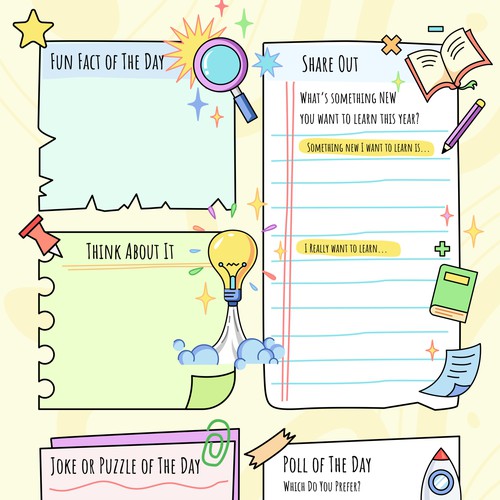 Fun Fact of The Day
Share Out
What's something NEW
you want to learn this year?
Something new I want to learn is...
Think About It
I Really want to learn...
Joke or Puzzle of The Day
Poll of The Day
Which Do You Prefer?